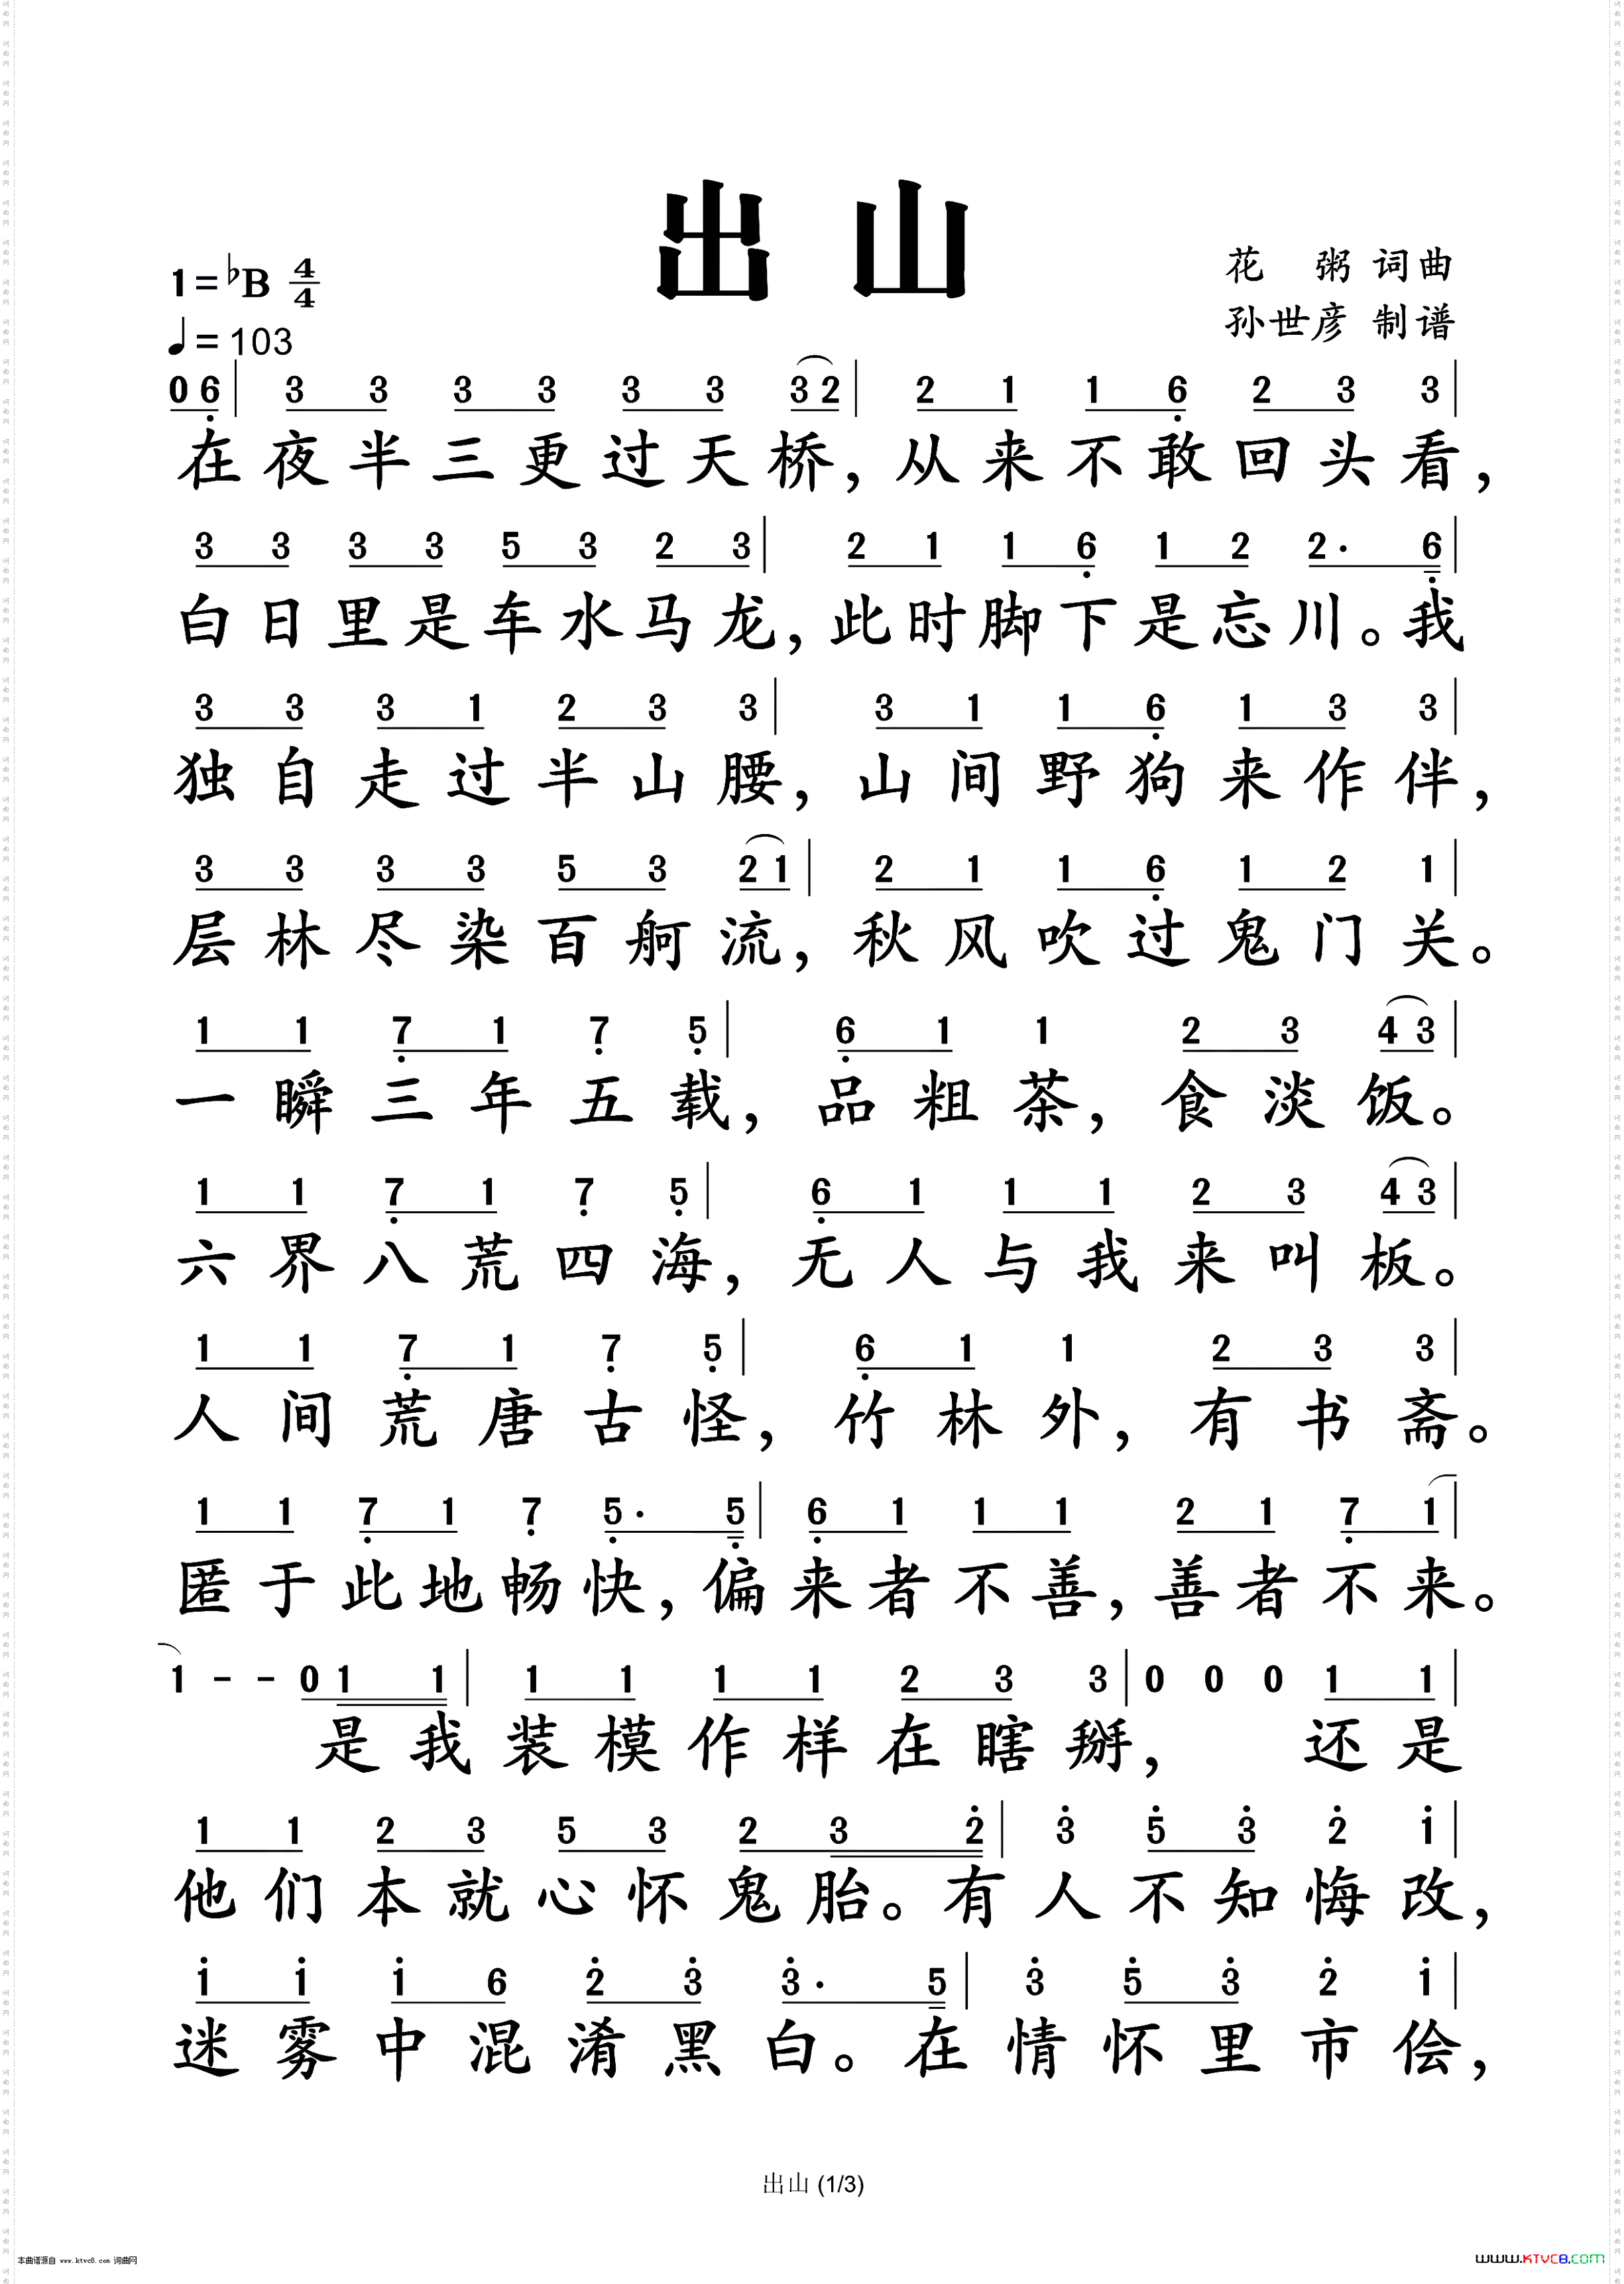 出 山
1=♭B 4/4
♩=103
花 粥 词曲
孙世彦 制谱
0 6̣ | 3 3 3 3 3 3 3 2 | 2 1 1 6̣ 2 3 3 |
在夜半三更过天桥，从来不敢回头看，
3 3 3 3 5 3 2 3 | 2 1 1 6̣ 1 2 2· 6̣ |
白日里是车水马龙，此时脚下是忘川。我
3 3 3 1 2 3 3 | 3 1 1 6̣ 1 3 3 |
独自走过半山腰，山间野狗来作伴，
3 3 3 3 5 3 2 1 | 2 1 1 6̣ 1 2 1 |
层林尽染百舸流，秋风吹过鬼门关。
1 1 7̣ 1 7̣ 5̣ | 6̣ 1 1 2 3 4 3 |
一瞬三年五载，品粗茶，食淡饭。
1 1 7̣ 1 7̣ 5̣ | 6̣ 1 1 1 2 3 4 3 |
六界八荒四海，无人与我来叫板。
1 1 7̣ 1 7̣ 5̣ | 6̣ 1 1 2 3 3 |
人间荒唐古怪，竹林外，有书斋。
1 1 7̣ 1 7̣ 5̣· 5̣ | 6̣ 1 1 1 2 1 7̣ 1 |
匿于此地畅快，偏来者不善，善者不来。
1 - - 0 1 1 | 1 1 1 1 2 3 3 | 0 0 0 1 1 |
是我装模作样在瞎掰， 还是
1 1 2 3 5 3 2 3 2̇ | 3̇ 5̇ 3̇ 2̇ 1̇ |
他们本就心怀鬼胎。有人不知悔改，
1̇ 1̇ 1̇ 6 2̇ 3̇ 3̇· 5 | 3̇ 5̇ 3̇ 2̇ 1̇ |
迷雾中混淆黑白。在情怀里市侩，
出山 (1/3)
本曲谱源自 www.ktvc8.com 词曲网
www.KTVC8.com